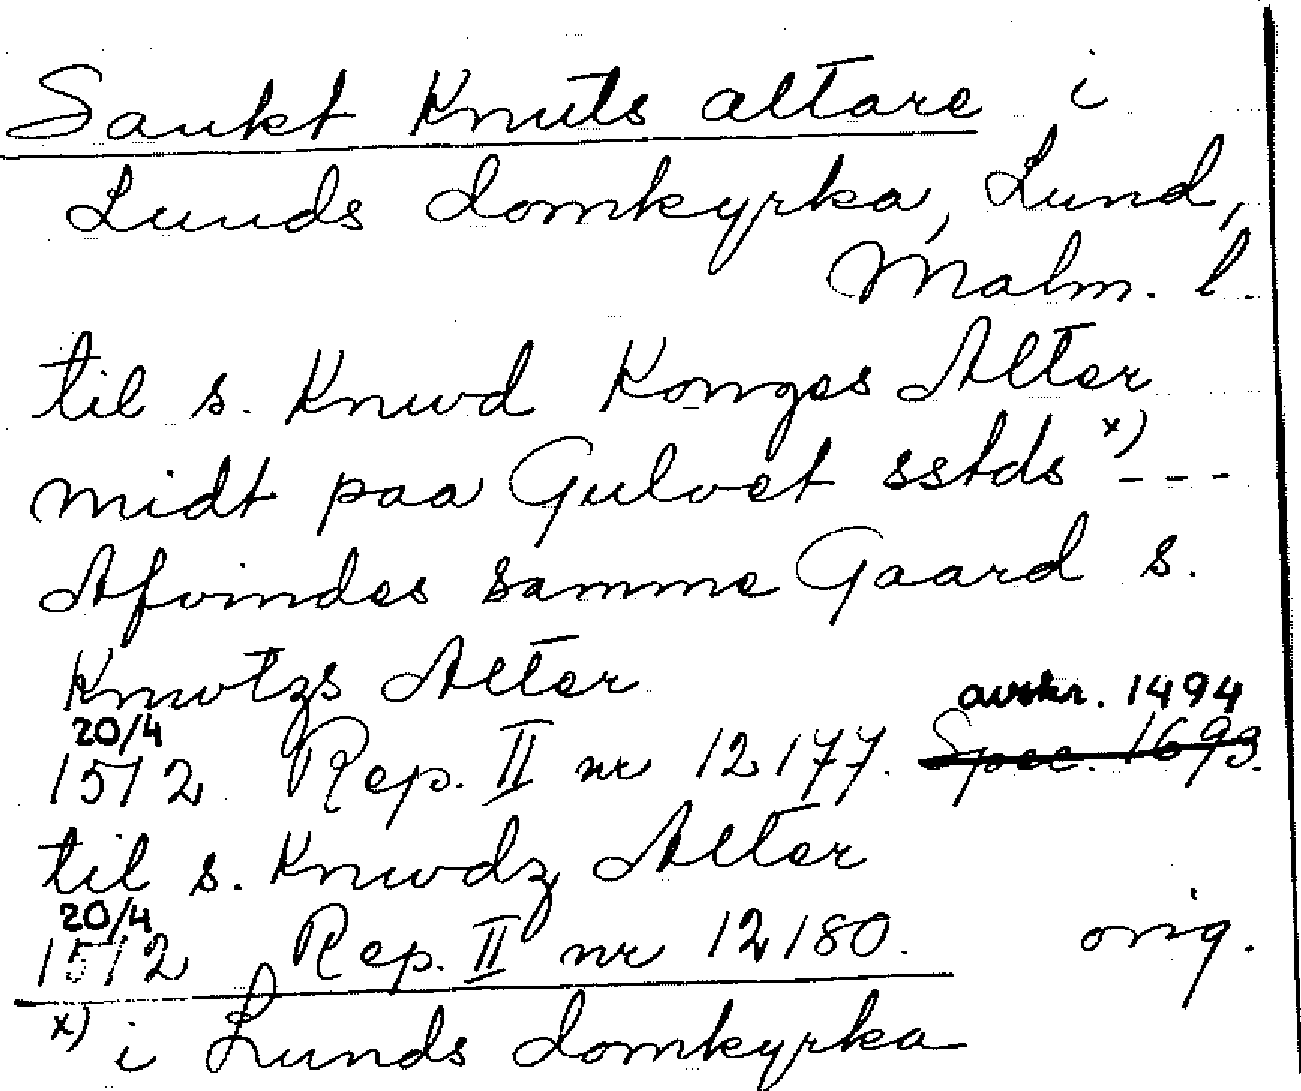 Sankt Knuts altare i
Lunds domkyrka, Lund,
Malm. l.
til s. Knwd Konges Alter
midt paa Gulvet sstds x) ---
Afvindes samme Gaard s.
Knwtzs Alter
avskr. 1494
20/4
1512 Rep. II nr 12177. Spec. 1693.
til s. Knwdz Alter
20/4
1512 Rep. II nr 12180. orig.
x) i Lunds domkyrka